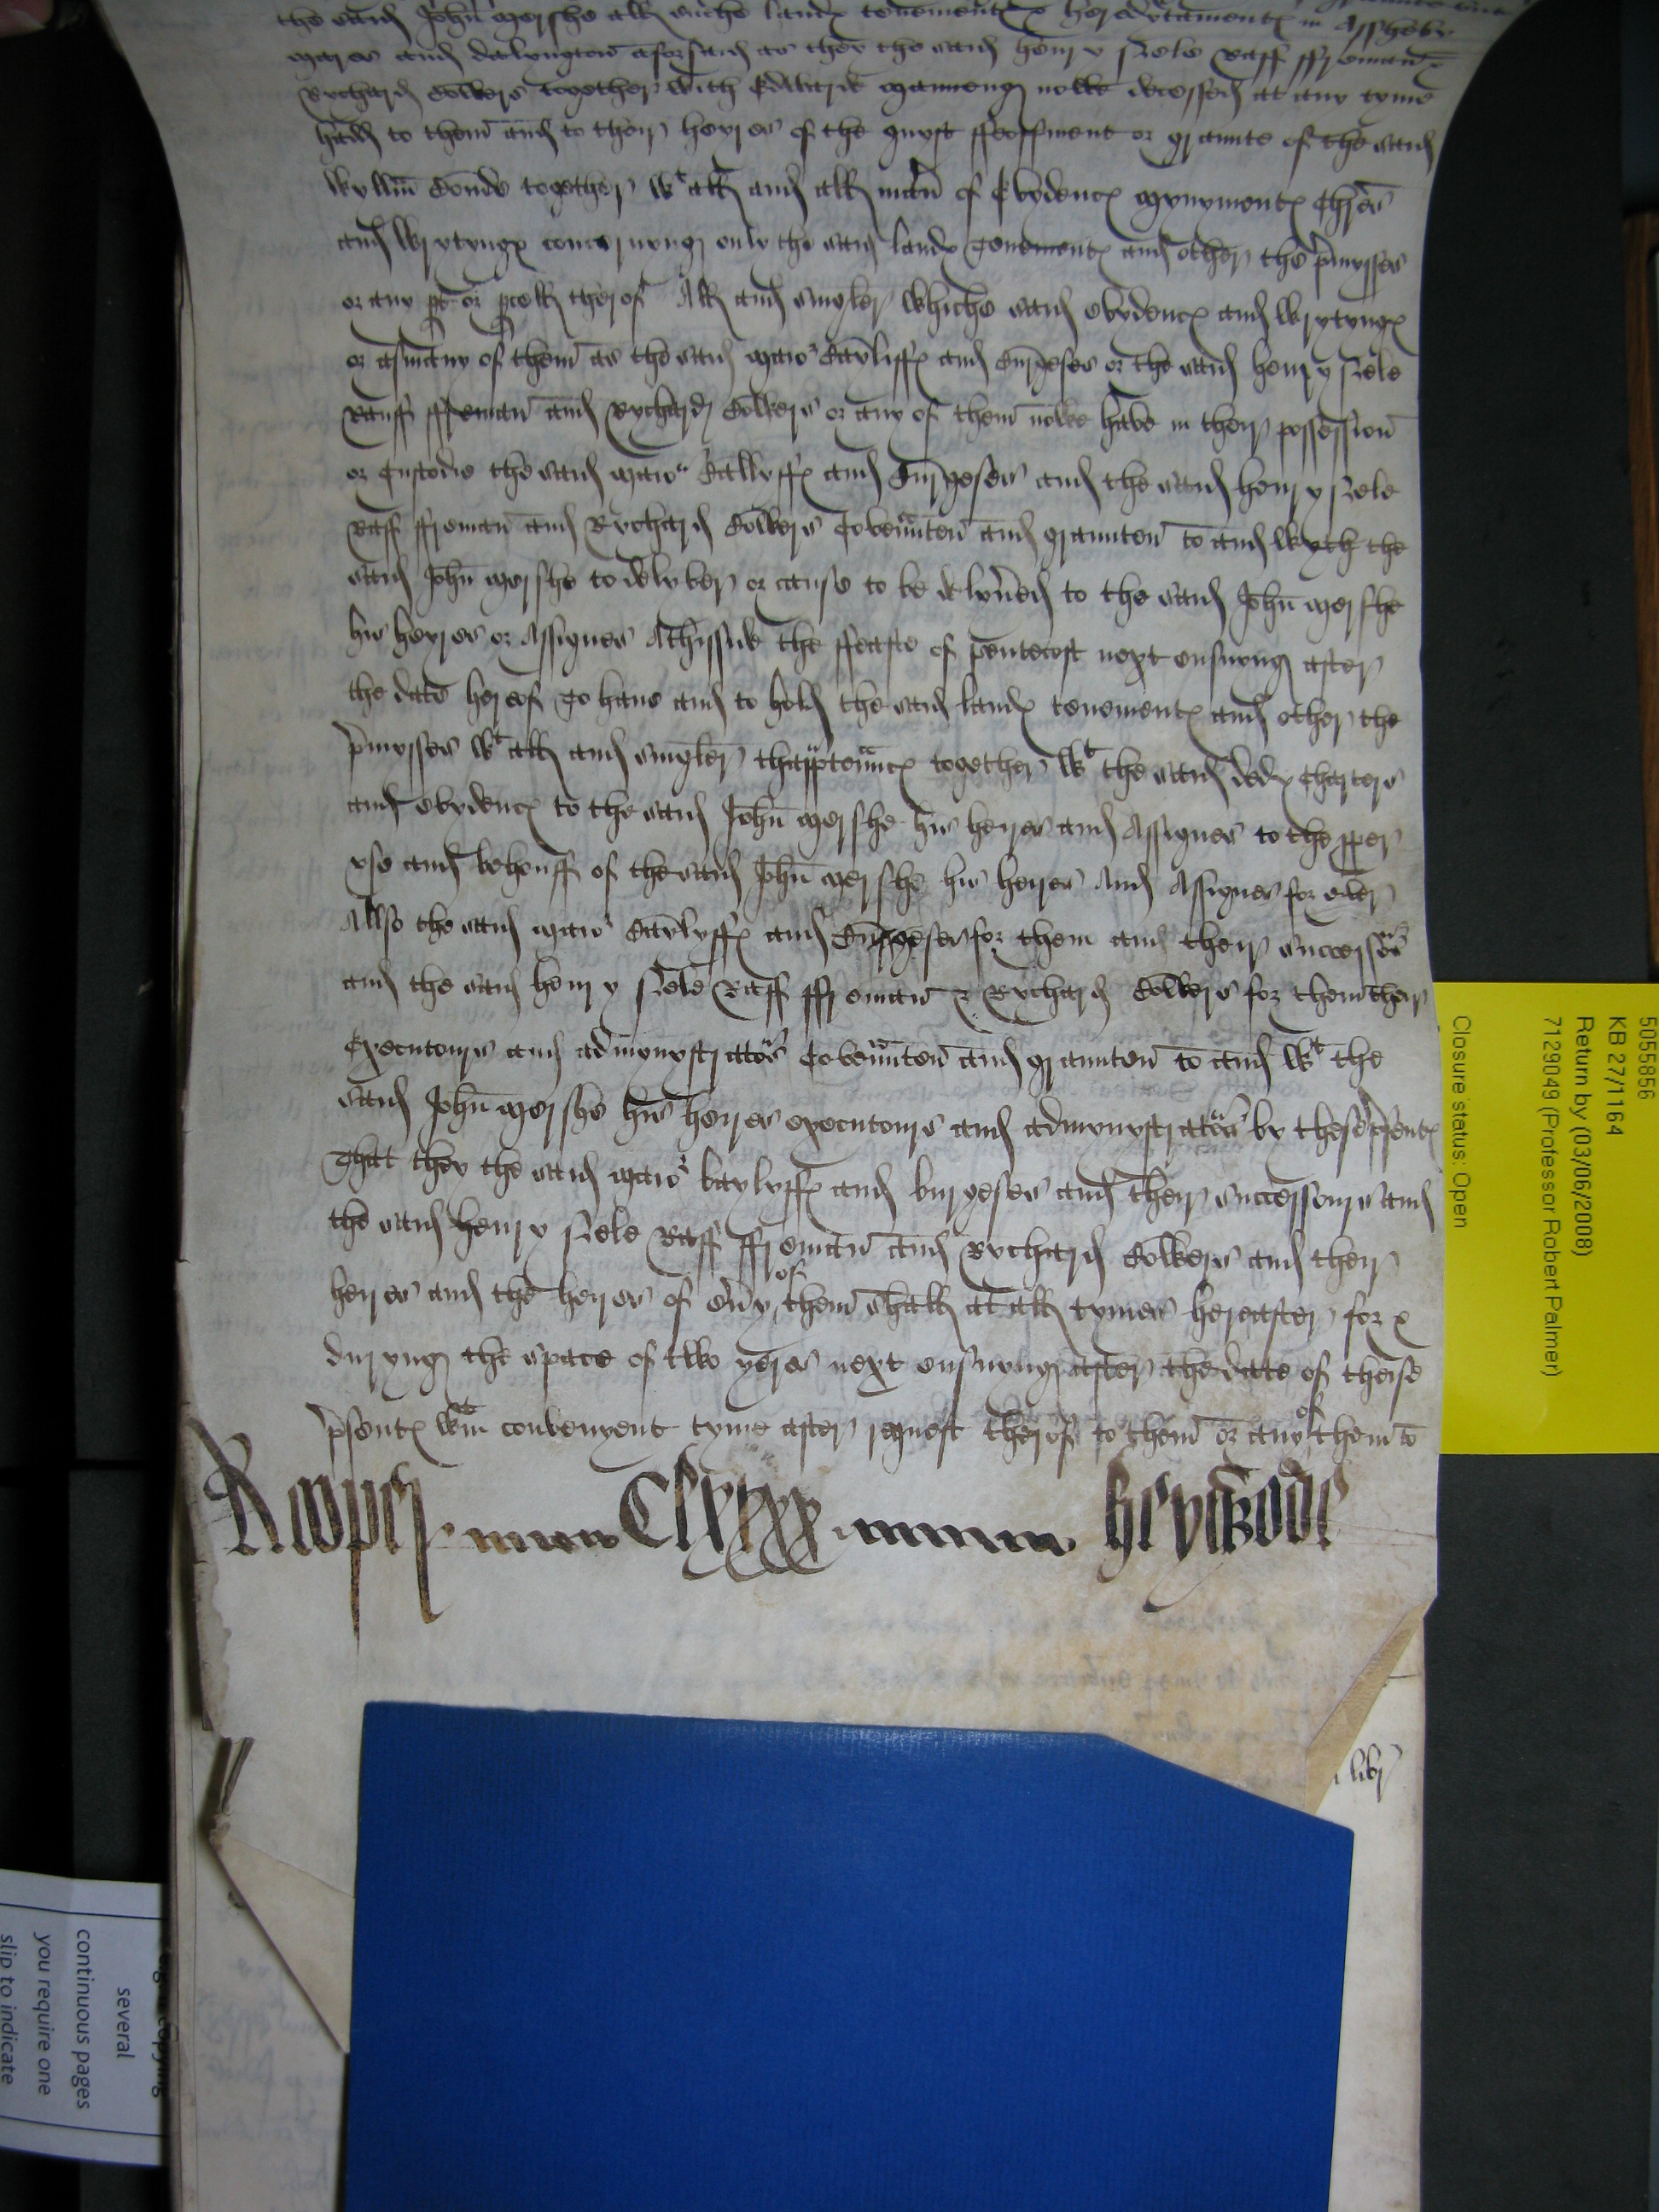 the said John Mershe all suche landes tenementes & heredytamentes in Assheby
Mares and dalyngton aforsaid as they the said henry Nele Raff ffreman &
Rychard Colkers together with Edwarde Mannyng nowe decessed at any tyme
hadd to them and to their heyres of the gyft ffeoffment or graunte of the said
Wyllm Bonde together wt all and all man of Evydences Mynymentes Chres
and Wrytynges concernyng only the said landes Tenementes and other the pmysses
or any pt or pcell therof All and singler Whiche said evydences and Wrytynges
or asmany of them as the said Maio Baylyffes and Burgeses or the said henry Nele
Rauff ffreman and Rychard Colkers or any of them nowe have in their possession
or Custodie the said Maio Baillyffes and Burgeses and the said henry Nele
Raff ffreman and Rychard Colkers Covennten and graunten to and Wyth the
said John Mershe to delyver or cause to be delyved to the said John Mershe
his heyres or Assignes Athisside the ffeaste of pentecost next ensuyng after
the date herof To have and to hold the said landes tenementes and other the
pmysses wt all and singler thapptennces together wt the said dedes charters
and evydences to the said John Mershe his heires and Assignes to the pper
use and behouff of the said John Mershe his heires And Assignes for ever
Allso the said Maio Baylyffes and Burgeses for them and their Successors
and the said henry Nele Raff ffreman & Rychard Colkers for them their
Executours and admynystrators Covennten and graunten to and wt the
said John Mershe his heires executours and admynystrators by these psentes
That they the said Maio baylyffes and burgeses and their Successours and
the said henry Nele Raff ffreman and Rychard Colkers and their
heires and the heires of evy of them shall at all tymes hereafter for &
duryng the space of two yeres next ensuyng after the date of theise
psentes wtin convenyent tyme after request therof to them or any of them to
Roper
libr
5055856
KB 27/1164
Return by (03/06/2008)
7129049 (Professor Robert Palmer)
Closure status: Open
several
continuous pages
you require one
slip to indicate